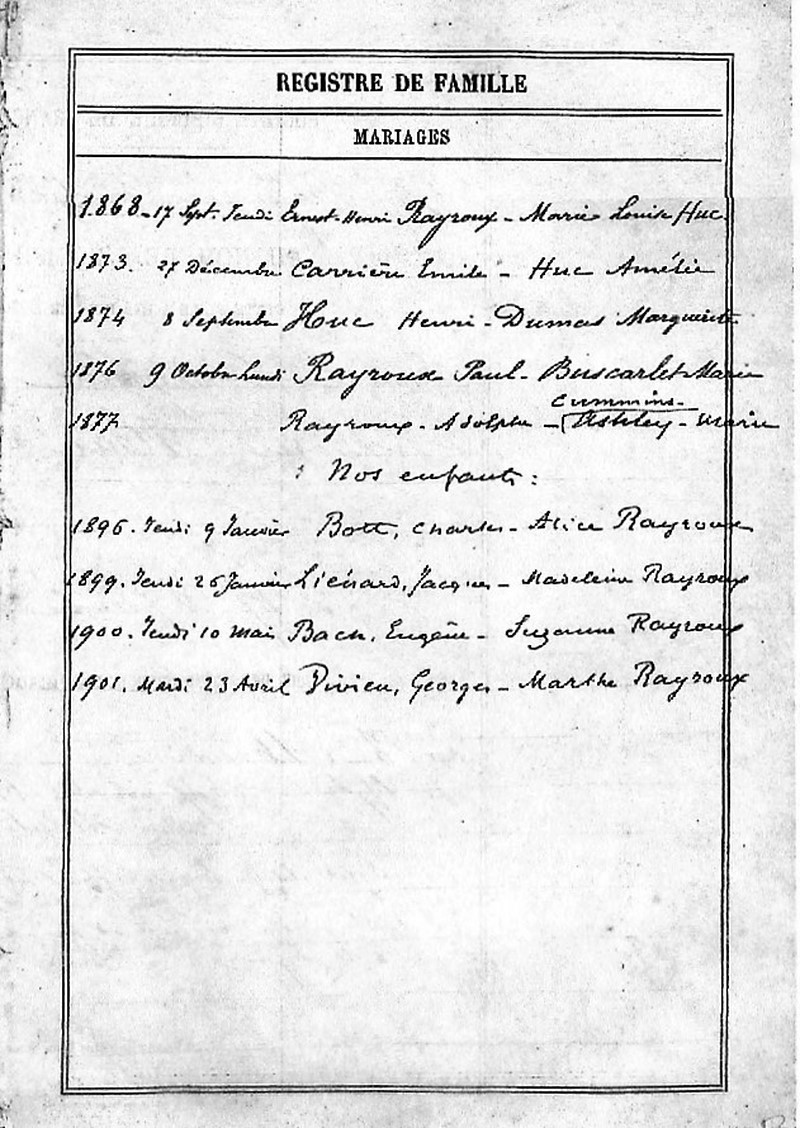 REGISTRE DE FAMILLE
MARIAGES
1868 - 17 Sept. Jeudi Ernest-Henri Rayroux - Marie Louise Huc
1873. 27 Décembre Carrière Emile - Huc Amélie
1874 8 Septembre Huc Henri - Dumas Marguerite
1876 9 Octobre Lundi Rayroux Paul - Buscarlet Marie
Cummins -
1877 Rayroux - Adolphe - Ashley - Marie
: Nos enfants :
1896. Jeudi 9 Janvier Bott, Charles - Alice Rayroux
1899. Jeudi 26 Janvier Liénard, Jacques - Madeleine Rayroux
1900. Jeudi 10 Mai Bach, Eugène - Suzanne Rayroux
1901. Mardi 23 Avril Vivien, Georges - Marthe Rayroux